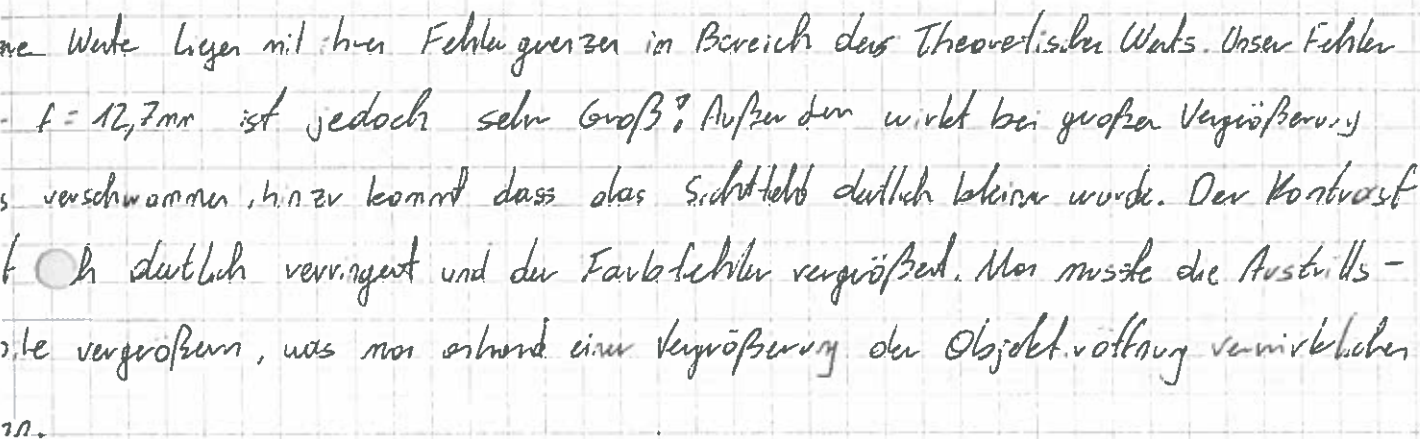 Werte liegen mit ihren Fehlergrenzen im Bereich des Theoretischen Werts. Unser Fehler
f = 12,7mm ist jedoch sehr Groß! Außerdem wirkt bei großer Vergrößerung
verschwommen, hinzu kommt dass das Sichtfeld deutlich kleiner wurde. Der Kontrast
deutlich verringert und der Farbfehler vergrößert. Man musste die Austritts-
vergrößern, was man anhand einer Vergrößerung der Objektivöffnung verwirklichen